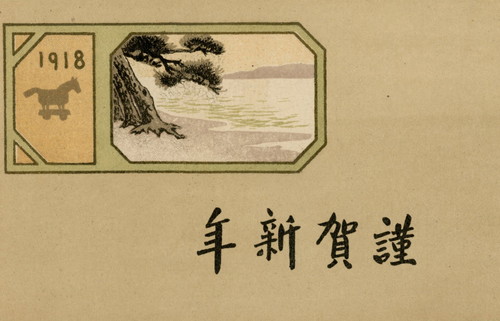 1918
謹賀新年